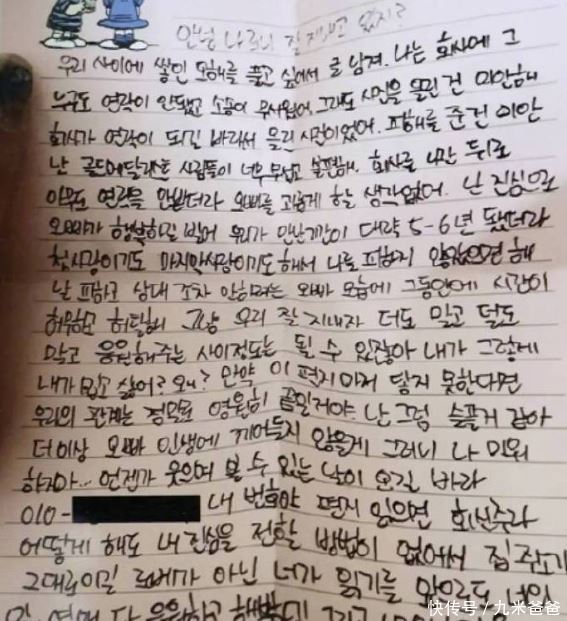 우리 사이에 쌓인 오해를 풀고 싶어서 글 남겨. 나는 회사에 그
누구도 연락이 안됐고 소송이 무서웠어. 그래도 사진을 올린건 미안해
회사가 연락이 되길 바래서 올린 사진이었어. 피해를 준건 미안
난 골드메달리스트 사람들이 너무 무섭고 불편해. 회사를 나간 뒤로
아무도 연락을 안받더라 오빠를 괴롭게 할 생각없어. 난 진심으로
오빠가 행복하길 빌어 우리가 만난기간이 대략 5-6년 됐더라
첫사랑이기도 마지막사랑이기도 해서 나를 피하지 않았으면 해
날 피하고 상대 조차 안하려는 오빠 모습에 그동안에 시간이
허무하고 허탈해 그냥 우리 잘 지내자 더도 말고 덜도
말고 응원해주는 사이정도는 될 수 있잖아 내가 그렇게
내가 밉고 싫어? 왜? 만약 이 편지마저 닿지 못한다면
우리의 관계는 정말로 영원히 끝일거야. 난 그럼 슬플거 같아
더이상 오빠 인생에 끼어들지 않을게 그러니 나 미워
하지마... 언젠가 웃으며 볼 수 있는 날이 오길 바라
010- 내 번호야 편지 읽으면 회신주라
어떻게 해도 내 진심을 전할 방법이 없어서 집주소가
그대로이길 로베가 아닌 너가 읽기를
快传号/九米爸爸